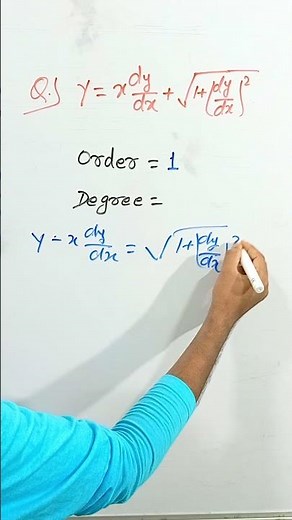 Q.) y = x dy/dx + √(1+(dy/dx)²)
Order = 1
Degree =
y - x dy/dx = √(1+(dy/dx)²